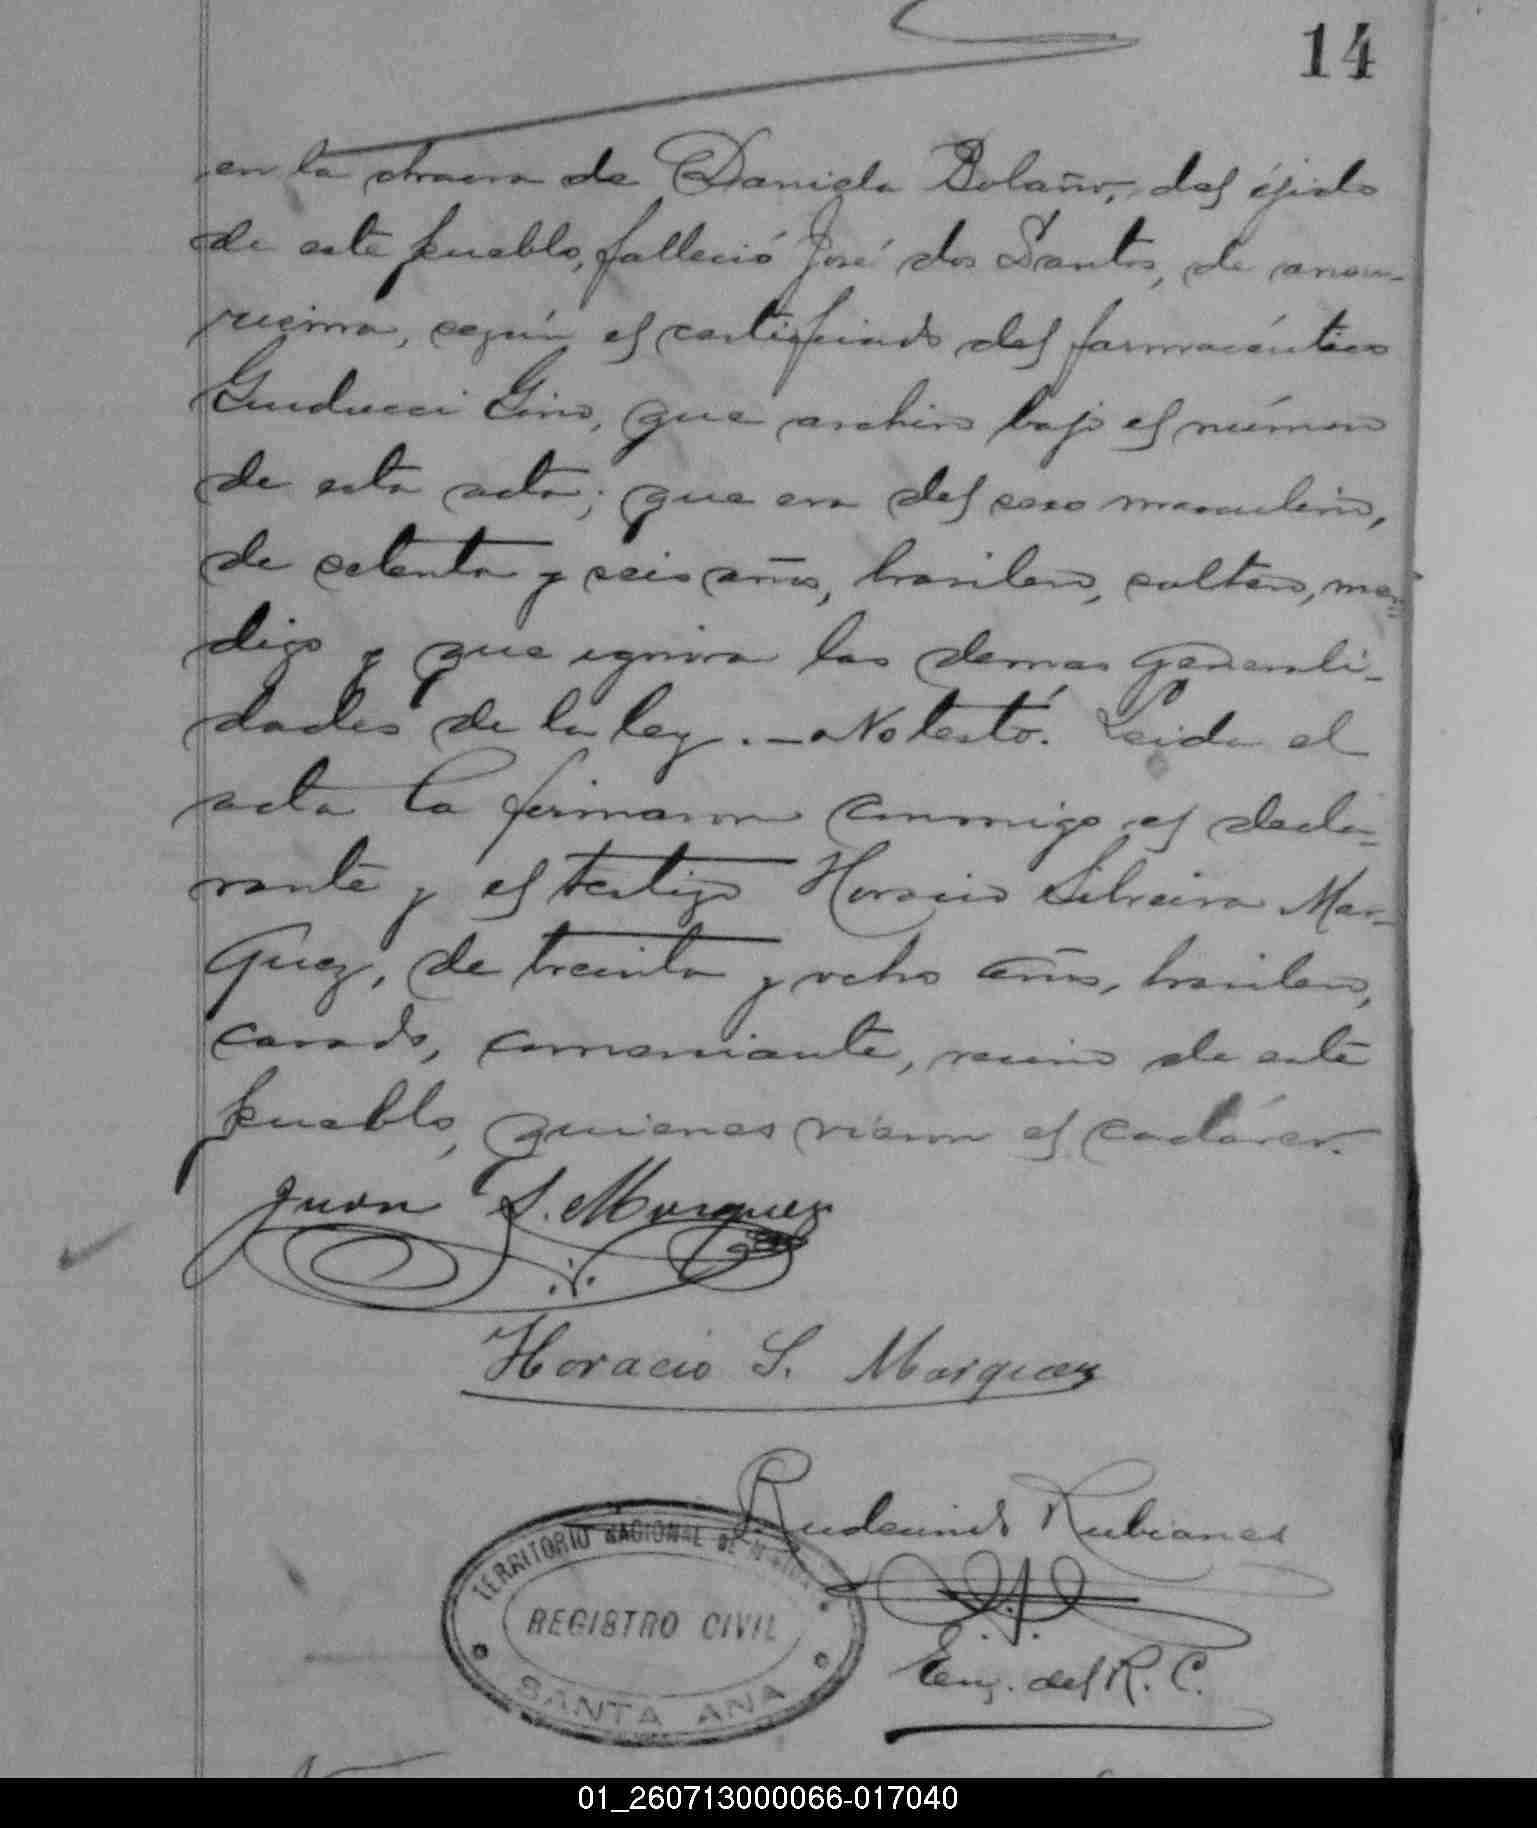 14
en la chacra de Daniela Bolaño, del éjido
de este pueblo, falleció José dos Santos, de aneu-
risima, según el certificado del farmacéutico
Guiducci Gino, que archivo bajo el número
de esta acta; que era del sexo masculino,
de setenta y seis años, brasilero, soltero, men-
digo y que ignora las demas generali-
dades de la ley. - No testó. Leida el
acta la firmaron conmigo el decla-
rante y el testigo Horacio Silveira Mar-
quez, de treinta y ocho años, brasilero,
casado, comerciante, vecino de este
pueblo, quienes vieron el cadáver.
Juan S. Marquez
Horacio S. Marquez
Rudecindo Rubianes
Enc. del R. C.
TERRITORIO NACIONAL DE MISIONES
REGISTRO CIVIL
SANTA ANA
01_260713000066-017040